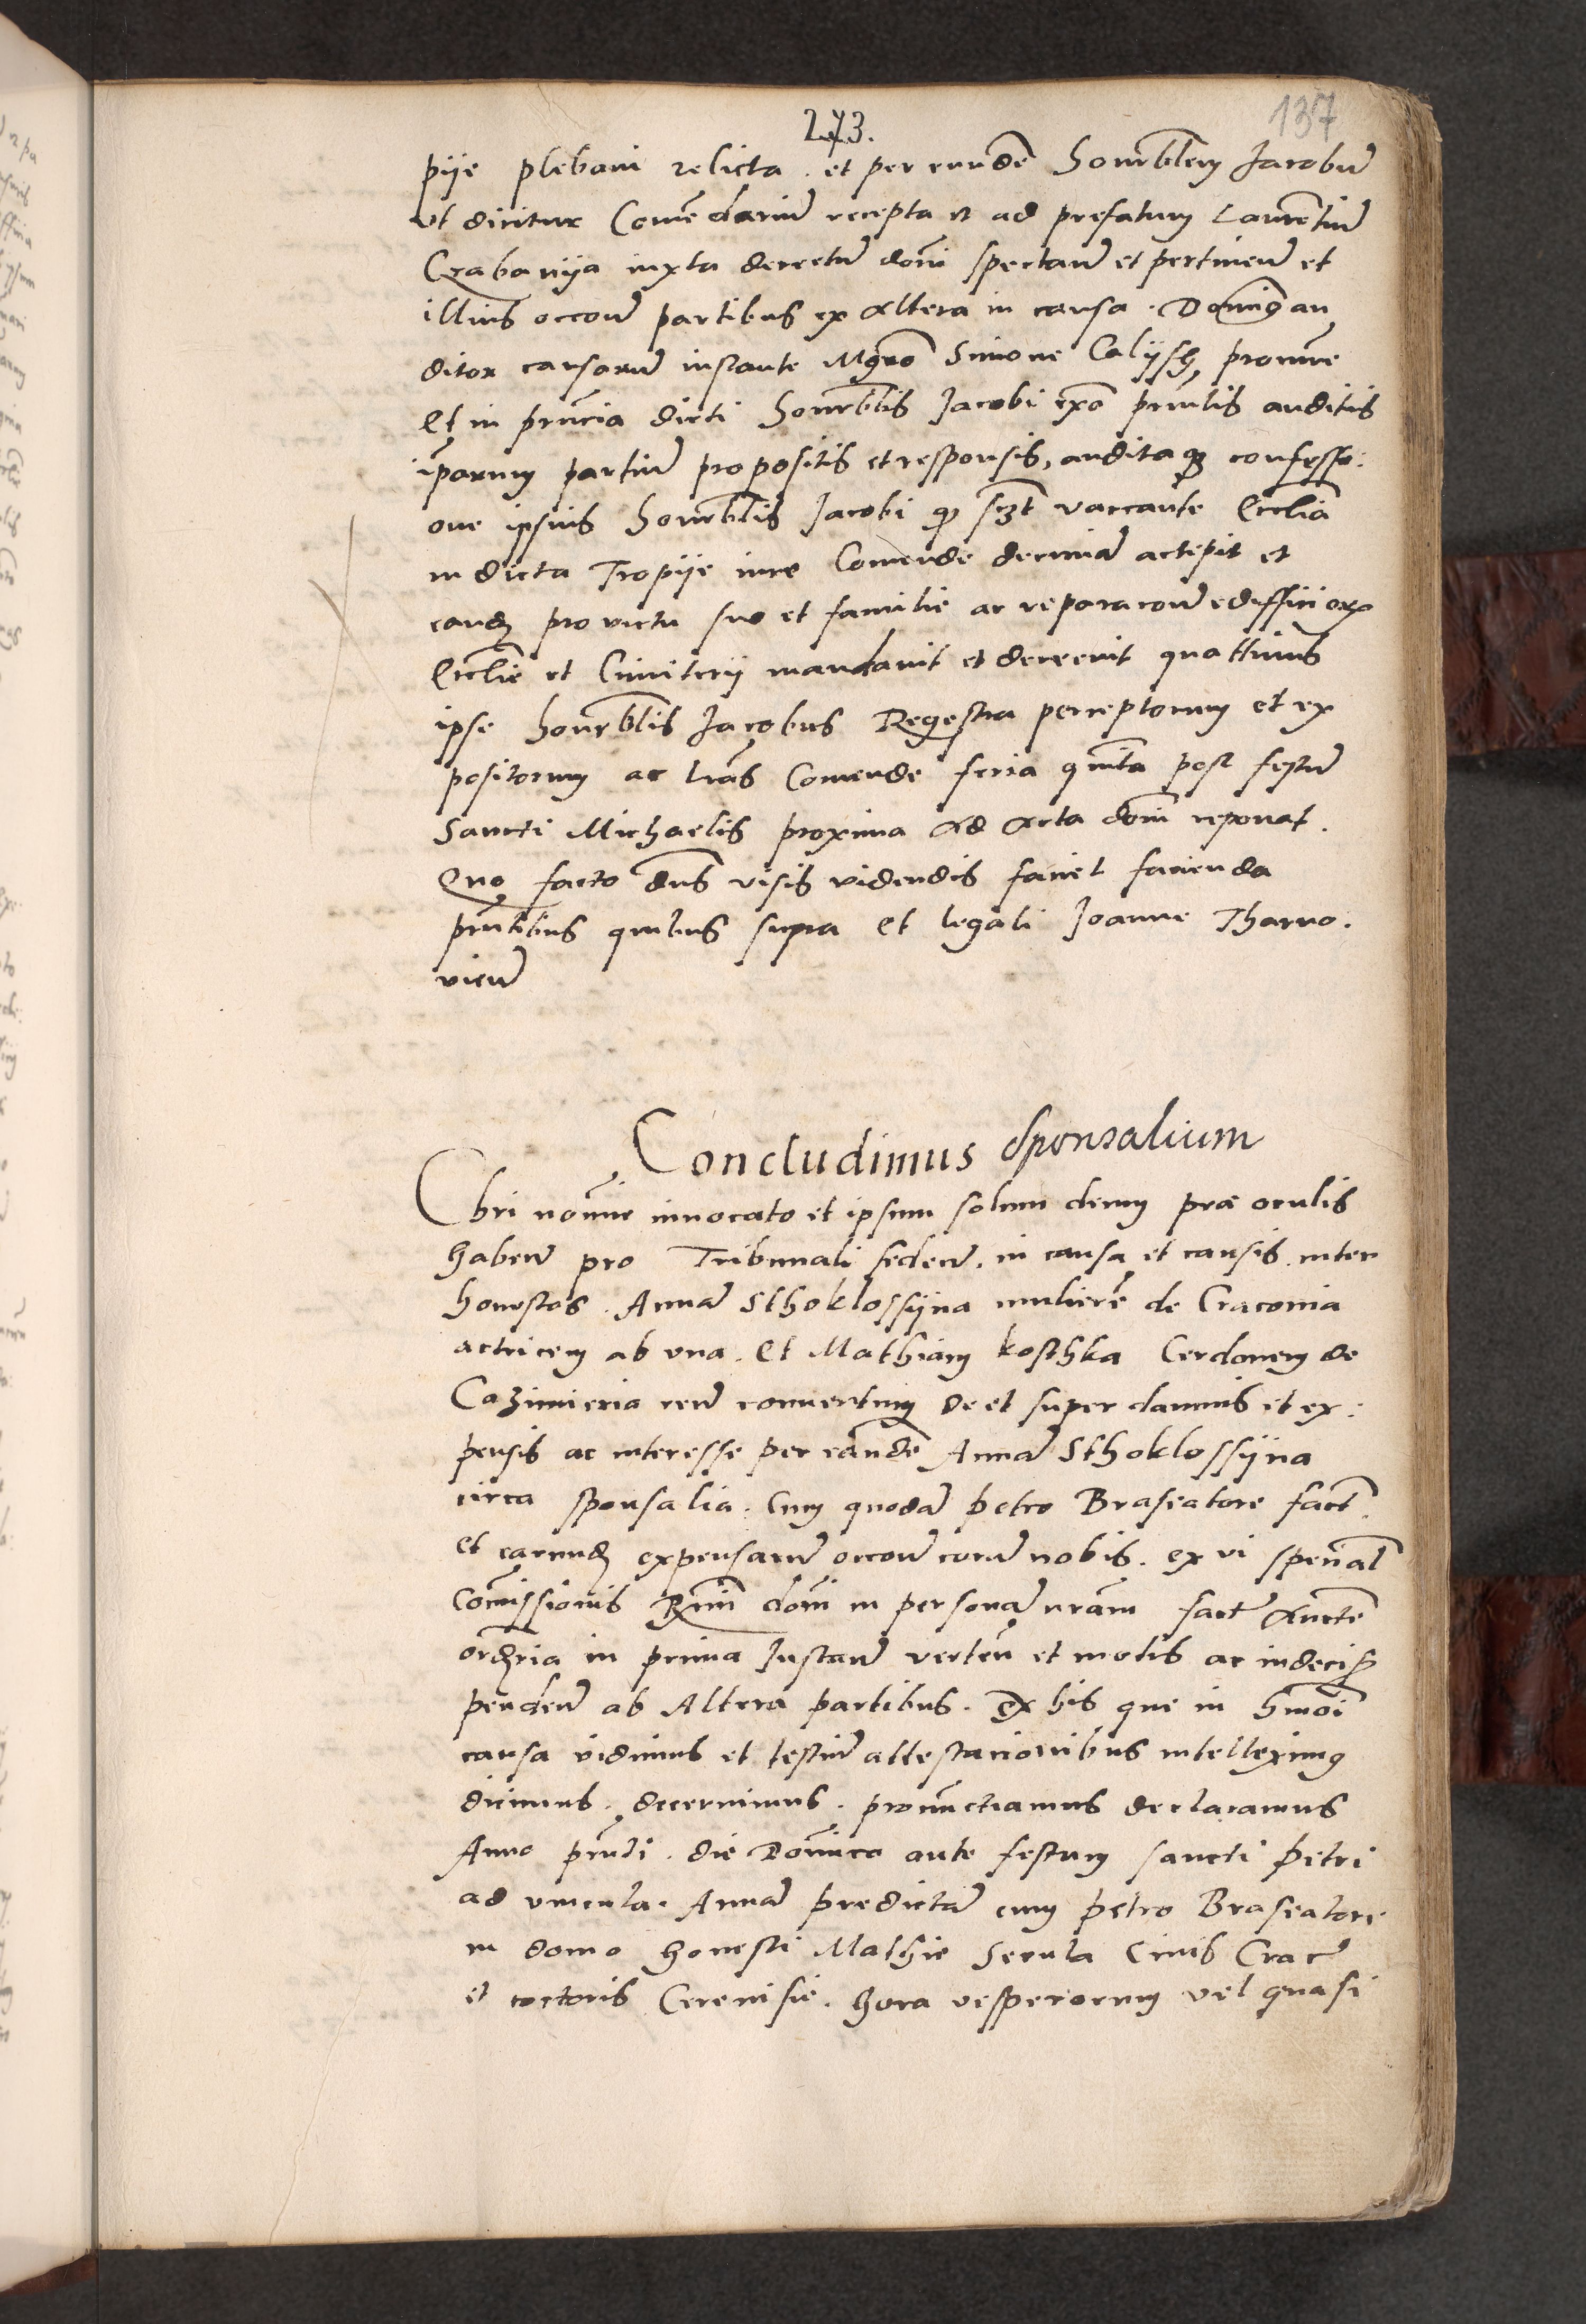 273.
137
pije plebani relicta. et per eundē honrblem Jacobū
vt dicitur Comēdariū recepta et ad prefatum Laurētiū
Crabanija iuxta decretū doni spectan̄ et pertinen̄ et
illius occoñ partibus ex altera in causa. Domin9 au
ditor causarū instante Mgrō Simone procure
Et in pruncia dicti honrblis Jacobi prnilis auditis
iparum partiū propositis et responsis, auditaq3 confesse:
one ipsius honrblis Jacobi q3 vaccante Ecclia
in dicta Tropije iure Comende decimā accepit et
eandē pro victu suo et familie ac reparacoñ edifficiorō
Ecclie et Cimiterij mandauit et decreuit quattinus
ipse honrblis Jacobus Regestra perceptorum et ex
positorum ac lrās Comende feria quinta post festū
Sancti Michaelis proxima ad acta doni reponat.
Quo facto dns visis videndis faciet facienda
prntibus quibus supra et legali Joanne Tharno.
vicen̄
Concludimus Sponsalium
Chri nomine innocato et ipsum solum deum præ oculis
haben̄ pro Tribunali seden̄. in causa et causis. inter
honestos. Annā Sthoklossijna mulierē de Craconia
actricem ab vna. Et Mathiam koschka Cerdonem de
Cazimieria reū conuentum de et super damnis et ex:
pensis ac interesse per eandē Annā Sthoklossijna
circa sponsalia. Cum quodā petro Braseatore fact.
et earundē expensarū occoñ corā nobis. ex vi special
Comissionis Rmi doni in personā nrām fact aucte
ordria in prima Instan̄ verteñ et motis ac indecis
penden̄ ab Altera partibus. Ex his que in hmōi
causa vidimus et testiū attestacionibus intelleximg
dicimus. decernimus. pronunctiamus declaramus
Anno prnti. die Dominico ante festum sancti petri
ad vincula. Annā predictā cum petro Braseatore
in domo honesti Mathie Secula Ciuis Crac̄
et coctoris Cereuisie. hora vesperorum vel quasi